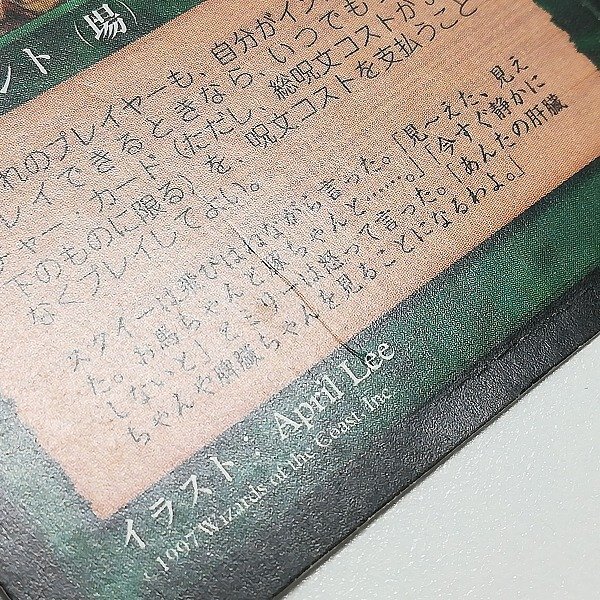 ント（場）
れのプレイヤーも、自分がイン
レイできるときなら、いつでも
チャー・カード（ただし、総呪文コストが
下のものに限る）を、呪文コストを支払うこと
なくプレイしてよい。
スクイーは飛びはねながら言った。「見〜えた、見え
た。お馬ちゃんと豚ちゃんと……。」「今すぐ静かに
しないと」とミリーは怒って言った。「あんたの肝臓
ちゃんや胴臓ちゃんを見ることになるわよ。」
イラスト：April Lee
c 1997 Wizards of the Coast, Inc